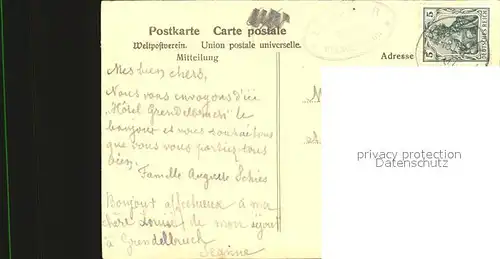 Postkarte Carte postale
Weltpostverein. Union postale universelle.
Mitteilung
Adresse
5 5
DEUTSCHES REICH
Mes bien chers,
Nous vous envoyons d'ici
"Hôtel Grendelbruch" le
bonjour et nous souhaitons
que vous vous portiez tous
bien.
Famille Auguste Schies
Bonjour affectueux à ma
chère Louise de mon séjour
à Grendelbruch
Jeanne
privacy protection
Datenschutz